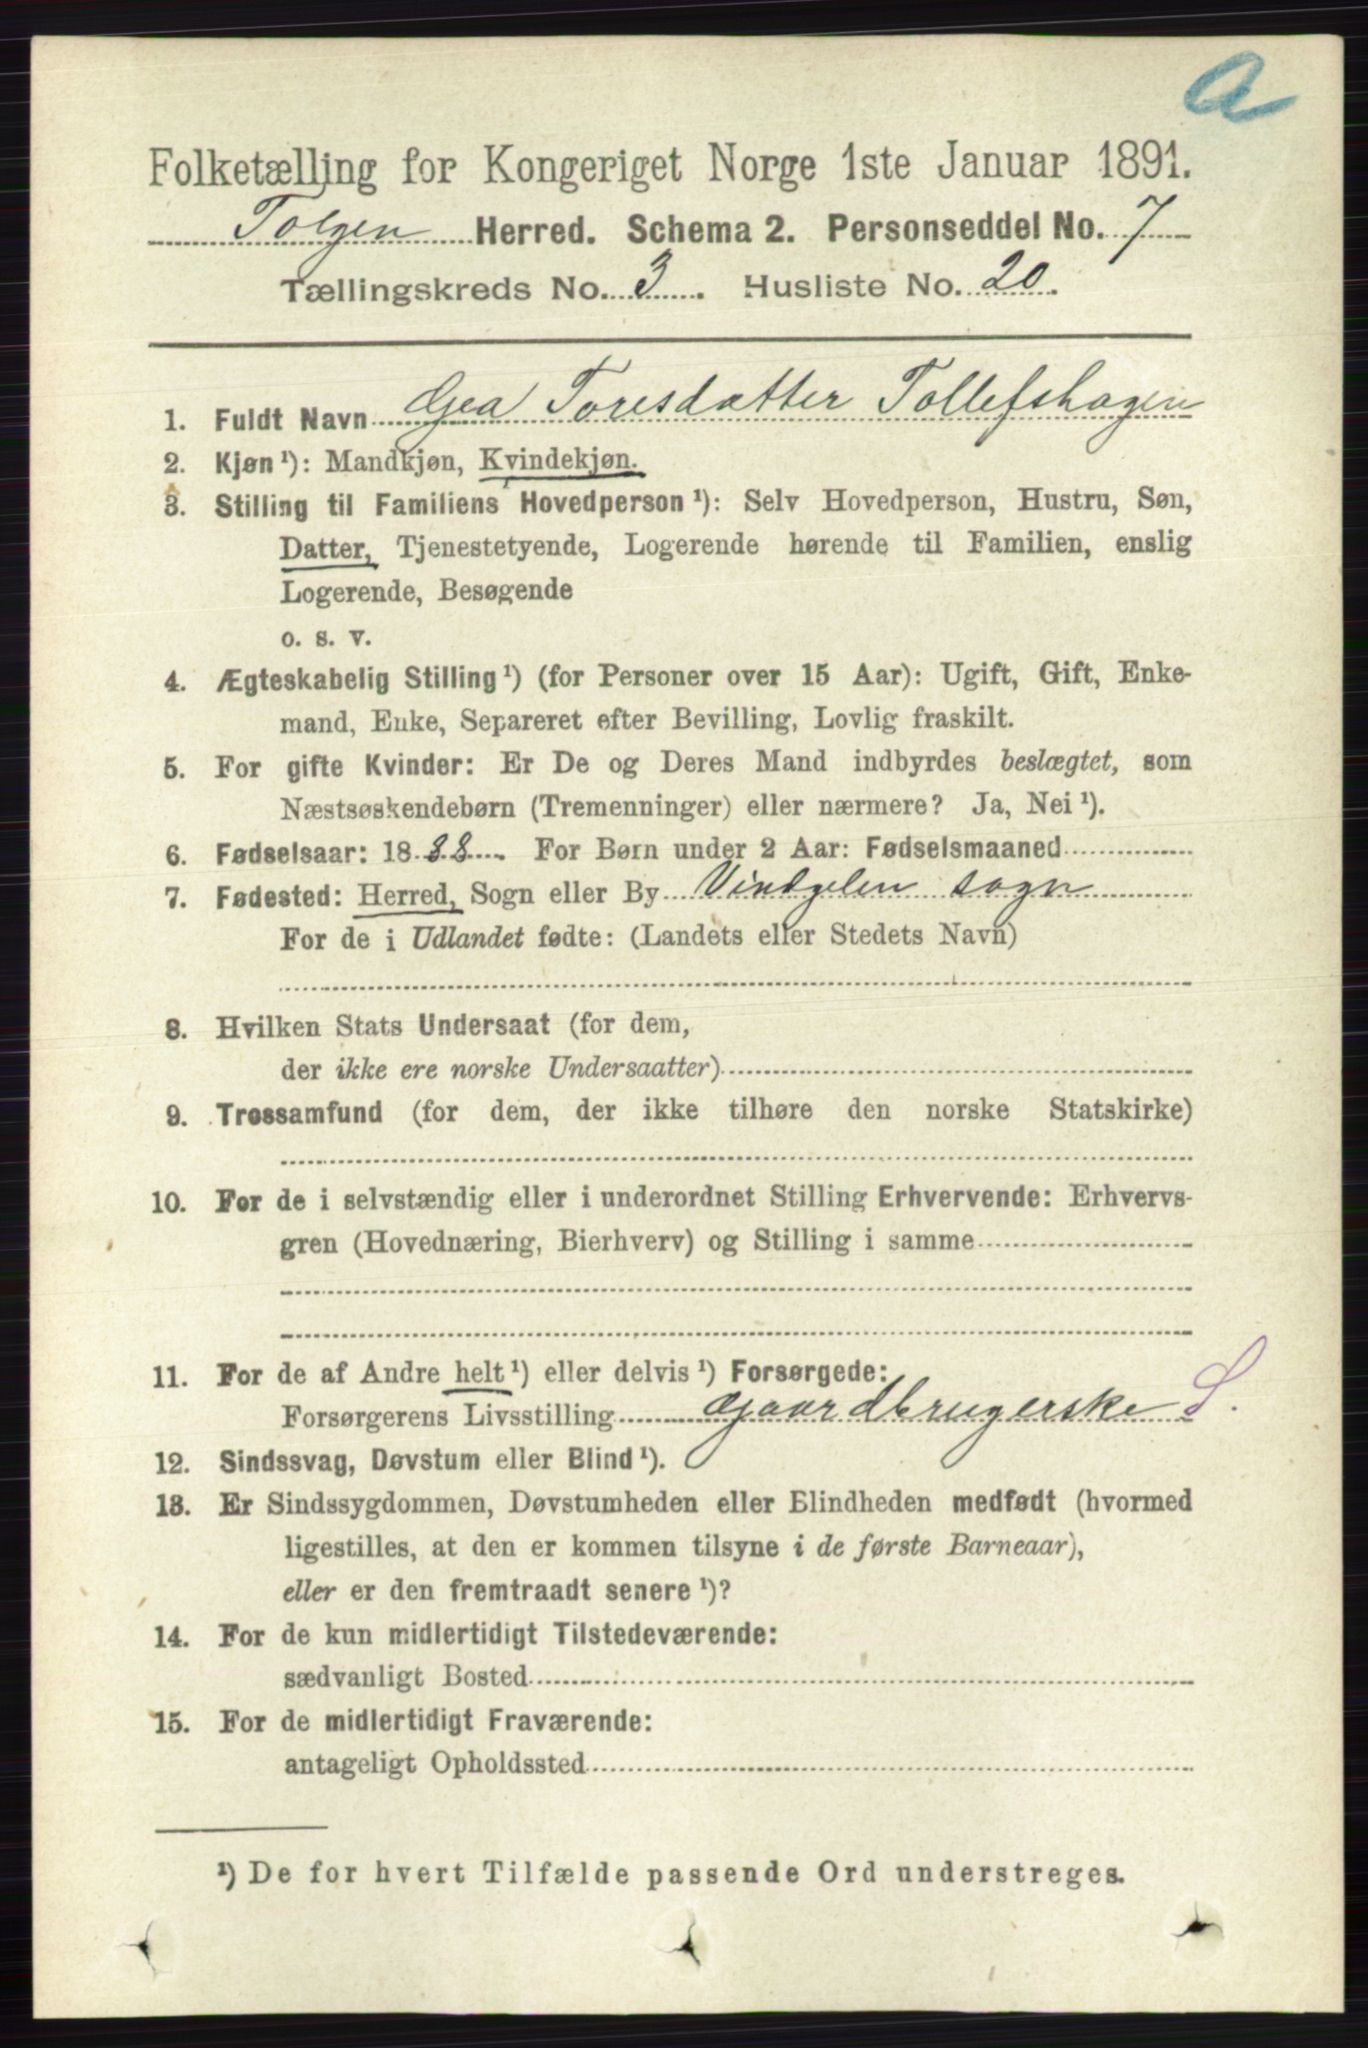 a
Folketælling for Kongeriget Norge 1ste Januar 1891.
Tolgen Herred. Schema 2. Personseddel No. 7
Tællingskreds No. 3. Husliste No. 20.
1. Fuldt Navn Gea Toresdatter Tollefshagen
2. Kjøn ¹): Mandkjøn, Kvindekjøn.
3. Stilling til Familiens Hovedperson ¹): Selv Hovedperson, Hustru, Søn,
Datter, Tjenestetyende, Logerende hørende til Familien, enslig
Logerende, Besøgende
o. s. v.
4. Ægteskabelig Stilling ¹) (for Personer over 15 Aar): Ugift, Gift, Enke-
mand, Enke, Separeret efter Bevilling, Lovlig fraskilt.
5. For gifte Kvinder: Er De og Deres Mand indbyrdes beslægtet, som
Næstsøskendebørn (Tremenninger) eller nærmere? Ja, Nei ¹).
6. Fødselsaar: 1888. For Børn under 2 Aar: Fødselsmaaned
7. Fødested: Herred, Sogn eller By Vingelen sogn
For de i Udlandet fødte: (Landets eller Stedets Navn)
8. Hvilken Stats Undersaat (for dem,
der ikke ere norske Undersaatter)
9. Trossamfund (for dem, der ikke tilhøre den norske Statskirke)
10. For de i selvstændig eller i underordnet Stilling Erhvervende: Erhvervs-
gren (Hovednæring, Bierhverv) og Stilling i samme
11. For de af Andre helt ¹) eller delvis ¹) Forsørgede:
Forsørgerens Livsstilling Gaardbrugerske S.
12. Sindssvag, Døvstum eller Blind ¹).
13. Er Sindssygdommen, Døvstumheden eller Blindheden medfødt (hvormed
ligestilles, at den er kommen tilsyne i de første Barneaar),
eller er den fremtraadt senere ¹)?
14. For de kun midlertidigt Tilstedeværende:
sædvanligt Bosted
15. For de midlertidigt Fraværende:
antageligt Opholdssted
¹) De for hvert Tilfælde passende Ord understreges.